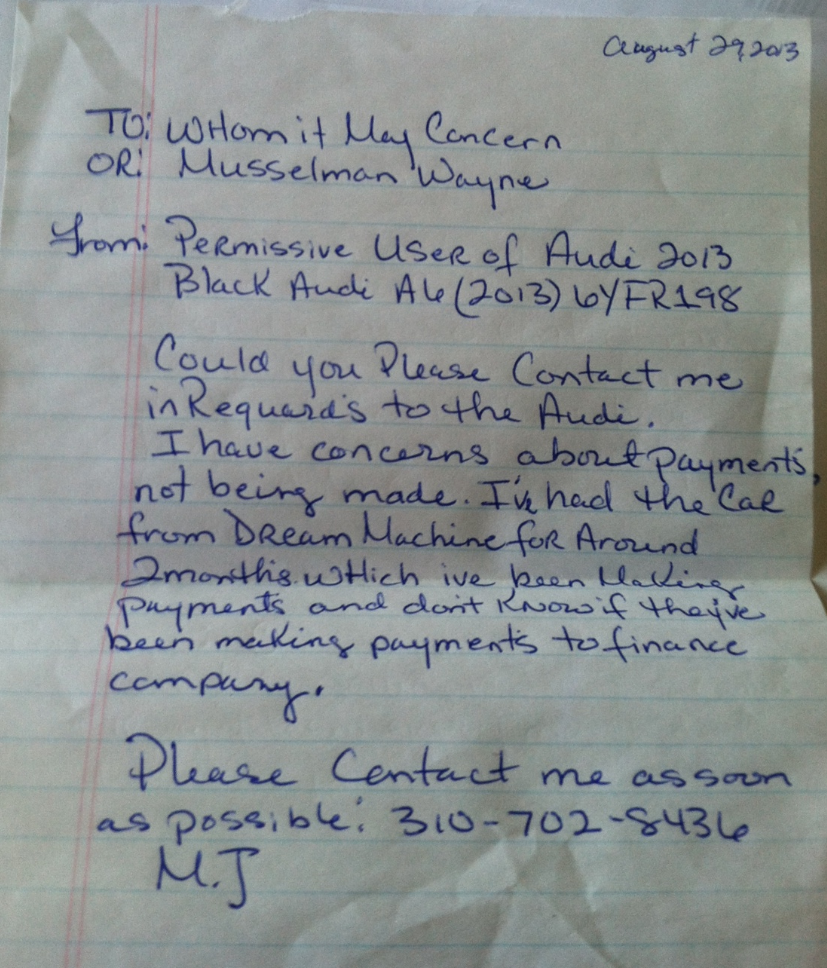 August 29, 2013
TO: WHom it May Concern
OR: Musselman Wayne
from: Permissive User of Audi 2013
Black Audi A6 (2013) 6YFR198
Could you Please Contact me
in Requards to the Audi.
I have concerns about payments,
not being made. I've had the Car
from Dream Machine for Around
2months. which ive been Making
payments and don't know if they've
been making payments to finance
company.
Please Contact me as soon
as possible: 310-702-8436
M.J